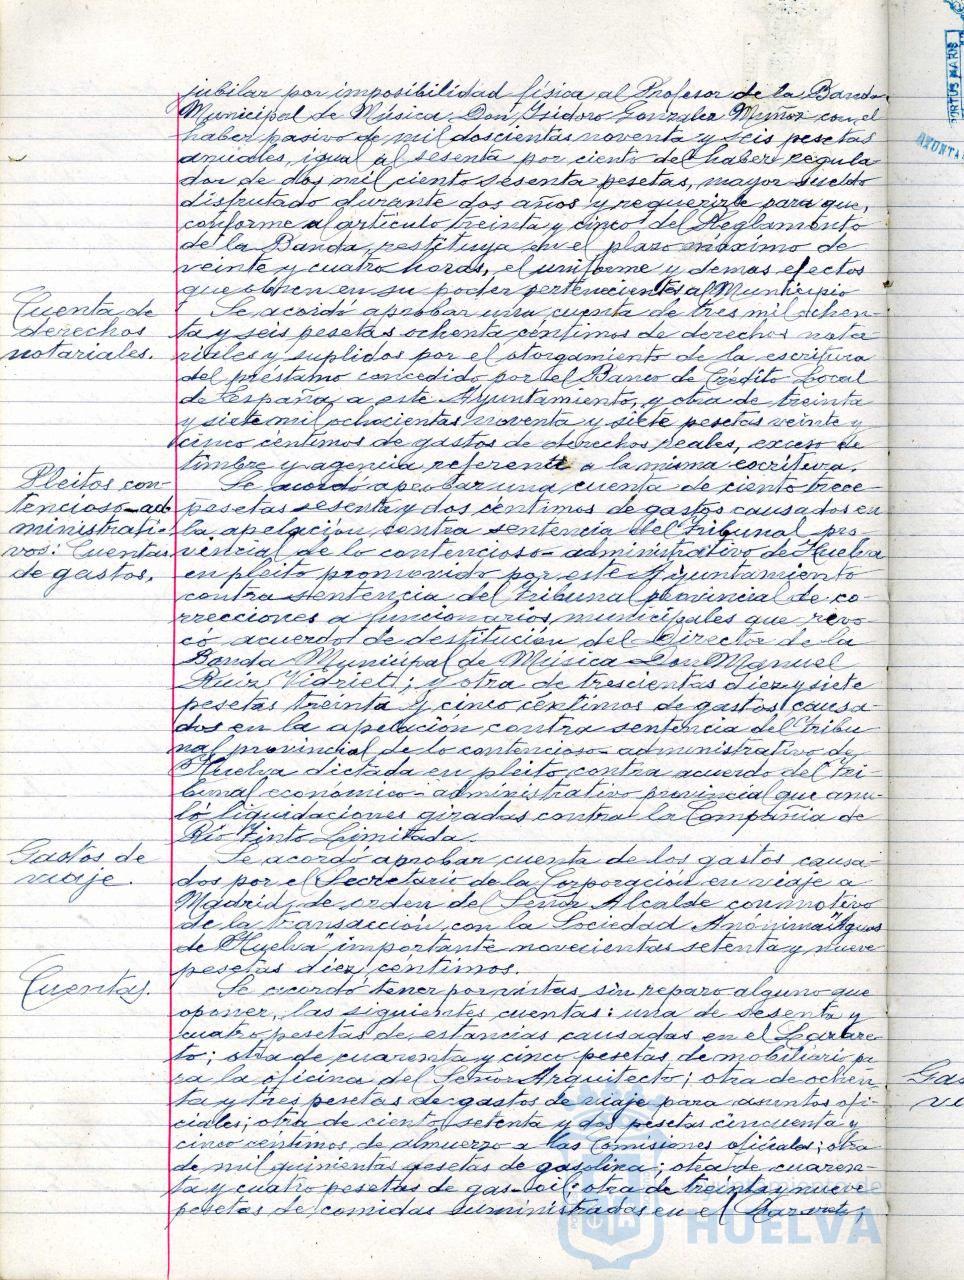 jubilar por imposibilidad física al Profesor de la Banda
Municipal de Música Don Isidoro Gonzalez Muñoz con el
haber pasivo de mil doscientas noventa y seis pesetas
anuales, igual al sesenta por ciento del haber regula
dor de dos mil ciento sesenta pesetas, mayor sueldo
disfrutado durante dos años y requerirle para que,
conforme al artículo treinta y cinco del Reglamento
de la Banda, restituya en el plazo máximo de
veinte y cuatro horas, el uniforme y demas efectos
que obren en su poder pertenecientes al Municipio
Cuenta de
derechos
notariales.
Se acordó aprobar una cuenta de tres mil ochen-
ta y seis pesetas ochenta céntimos de derechos nota-
riales y suplidos por el otorgamiento de la escritura
del préstamo concedido por el Banco de Crédito Local
de España a este Ayuntamiento, y otra de treinta
y siete mil ochocientas noventa y siete pesetas veinte y
cinco céntimos de gastos de derechos reales, exceso de
timbre y agencia referente a la misma escritura.
Pleitos con-
tencioso-ad
ministrati-
vos: Cuentas
de gastos.
Se acordó aprobar una cuenta de ciento trece
pesetas sesenta y dos céntimos de gastos causados en
la apelación contra sentencia del Tribunal pro-
vincial de lo contencioso-administrativo de Huelva
en pleito promovido por este Ayuntamiento
contra sentencia del Tribunal provincial de co-
rrecciones a funcionarios municipales que revo-
có acuerdo de destitución del Director de la
Banda Municipal de Música Don Manuel
Ruiz Vidriet; y otra de trescientas diez y siete
pesetas treinta y cinco céntimos de gastos causa-
dos en la apelación contra sentencia del Tribu-
nal provincial de lo contencioso-administrativo de
Huelva dictada en pleito contra acuerdo del Tri-
bunal económico-administrativo provincial que anu-
ló liquidaciones giradas contra la Compañia de
Rio Tinto Limitada.
Gastos de
viaje.
Se acordó aprobar cuenta de los gastos causa-
dos por el Secretario de la Corporación en viaje a
Madrid, de orden del Señor Alcalde con motivo
de la transacción con la Sociedad Anónima "Aguas
de Huelva" importante novecientas setenta y nueve
pesetas diez céntimos.
Cuentas.
Se acordó tener por vistas, sin reparo alguno que
oponer, las siguientes cuentas: una de sesenta y
cuatro pesetas de estancias causadas en el Lazare-
to; otra de cuarenta y cinco pesetas de mobiliario pa
ra la oficina del Señor Arquitecto; otra de ochen-
ta y tres pesetas de gastos de viaje para asuntos ofi-
ciales; otra de ciento setenta y dos pesetas cincuenta y
cinco céntimos de almuerzo a las Comisiones oficiales; otra
de mil quinientas pesetas de gasolina; otra de cuaren-
ta y cuatro pesetas de gas-oil; otra de treinta y nueve
pesetas de comidas suministradas en el Lazareto;
Gas
vi
PORTUS MARIS
AYUNTA
Ayuntamiento de
HUELVA